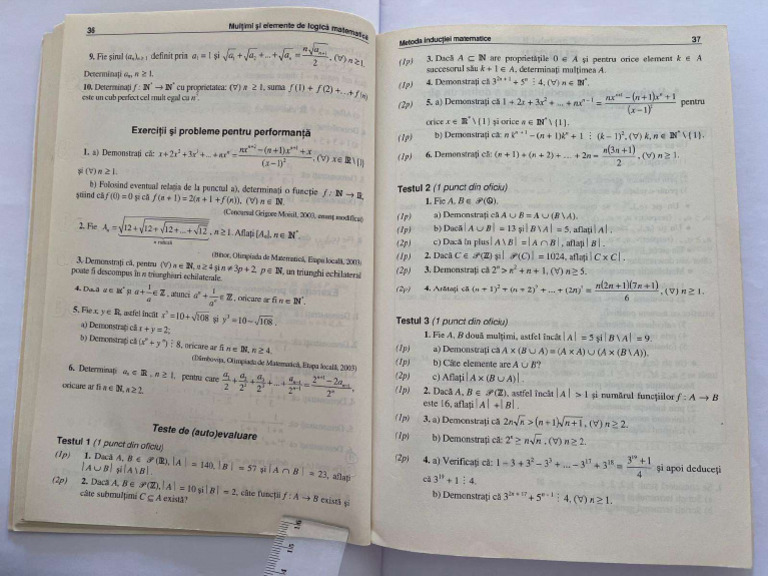 36
Mulțimi și elemente de logică matematică
9. Fie șirul (aₙ)ₙ≥₁ definit prin a₁ = 1 și √a₁ + √a₂ + ... + √aₙ = n√aₙ₊₁ / 2, (∀) n ≥ 1.
Determinați aₙ, n ≥ 1.
10. Determinați f : ℕ* → ℕ* cu proprietatea: (∀) n ≥ 1, suma f(1) + f(2) + ... + f(n)
este un cub perfect cel mult egal cu n³.
Exerciții și probleme pentru performanță
1. a) Demonstrați că: x + 2x² + 3x³ + ... + nxⁿ = (nxⁿ⁺² – (n+1)xⁿ⁺¹ + x) / (x–1)², (∀) x ∈ ℝ \ {1}
și (∀) n ≥ 1.
b) Folosind eventual relația de la punctul a), determinați o funcție f : ℕ → ℝ,
știind că f(0) = 0 și că f(n + 1) = 2(n + 1 + f(n)), (∀) n ∈ ℕ.
(Concursul Grigore Moisil, 2003, enunț modificat)
2. Fie Aₙ = √(12 + √(12 + √(12 + ... + √12))), n ≥ 1. Aflați [Aₙ], n ∈ ℕ*.
n radicali
(Bihor, Olimpiada de Matematică, Etapa locală, 2003)
3. Demonstrați că, pentru (∀) n ∈ ℕ, n ≥ 4 și n ≠ 3p + 2, p ∈ ℕ, un triunghi echilateral
poate fi descompus în n triunghiuri echilaterale.
4. Dacă a ∈ ℝ* și a + 1/a ∈ ℤ, atunci aⁿ + 1/aⁿ ∈ ℤ, oricare ar fi n ∈ ℕ*.
5. Fie x, y ∈ ℝ, astfel încât x³ = 10 + √108 și y³ = 10 – √108.
a) Demonstrați că x + y = 2;
b) Demonstrați că (xⁿ + yⁿ) ⋮ 8, oricare ar fi n ∈ ℕ, n ≥ 4.
(Dâmbovița, Olimpiada de Matematică, Etapa locală, 2003)
6. Determinați aₙ ∈ ℝ, n ≥ 1, pentru care a₁/2 + a₂/2² + a₃/2³ + ... + aₙ₋₁/2ⁿ⁻¹ = (2ⁿ⁻¹ – 2aₙ₋₁) / 2ⁿ,
oricare ar fi n ∈ ℕ, n ≥ 2.
Teste de (auto)evaluare
Testul 1 (1 punct din oficiu)
(1p) 1. Dacă A, B ∈ 𝒫(ℤ), |A| = 140, |B| = 57 și |A ∩ B| = 23, aflați
|A ∪ B| și |A \ B|.
(2p) 2. Dacă A, B ∈ 𝒫(ℤ), |A| = 10 și |B| = 2, câte funcții f : A → B există și
câte submulțimi C ⊆ A există?
Metoda inducției matematice
37
(1p) 3. Dacă A ⊂ ℕ are proprietățile 0 ∈ A și pentru orice element k ∈ A
succesorul său k + 1 ∈ A, determinați mulțimea A.
(1p) 4. Demonstrați că 3²ⁿ⁺¹ + 5ⁿ ⋮ 4, (∀) n ∈ ℕ*.
(2p) 5. a) Demonstrați că 1 + 2x + 3x² + ... + nxⁿ⁻¹ = (nxⁿ⁺¹ – (n+1)xⁿ + 1) / (x–1)² pentru
orice x ∈ ℝ* \ {1} și orice n ∈ ℕ* \ {1}.
(1p) b) Demonstrați că: n kⁿ⁺¹ – (n + 1)kⁿ + 1 ⋮ (k – 1)², (∀) k, n ∈ ℕ* \ {1}.
(1p) 6. Demonstrați că: (n + 1) + (n + 2) + ... + 2n = n(3n+1) / 2, (∀) n ≥ 1.
Testul 2 (1 punct din oficiu)
1. Fie A, B ∈ 𝒫(ℚ).
(1p) a) Demonstrați că A ∪ B = A ∪ (B \ A).
(1p) b) Dacă |A ∪ B| = 13 și |B \ A| = 5, aflați |A|.
(2p) c) Dacă în plus |A \ B| = |A ∩ B|, aflați |B|.
(1p) 2. Dacă C ∈ 𝒫(ℤ) și |𝒫(C)| = 1024, aflați |C × C|.
(2p) 3. Demonstrați că 2ⁿ > n² + n + 1, (∀) n ≥ 5.
(2p) 4. Arătați că (n + 1)² + (n + 2)² + ... + (2n)² = n(2n+1)(7n+1) / 6, (∀) n ≥ 1.
Testul 3 (1 punct din oficiu)
1. Fie A, B două mulțimi, astfel încât |A| = 5 și |B \ A| = 9.
(1p) a) Demonstrați că A × (B ∪ A) = (A × A) ∪ (A × (B\A)).
(1p) b) Câte elemente are A ∪ B?
(2p) c) Aflați |A × (B ∪ A)|
(1p) 2. Dacă A, B ∈ 𝒫(ℤ), astfel încât |A| > 1 și numărul funcțiilor f : A → B
este 16, aflați |A| + |B|.
(1p) 3. a) Demonstrați că 2n√n > (n + 1)√(n + 1), (∀) n ≥ 2.
(1p) b) Demonstrați că: 2ⁿ ≥ n√n, (∀) n ≥ 2.
(2p) 4. a) Verificați că: 1 – 3 + 3² – 3³ + ... – 3¹⁷ + 3¹⁸ = (3¹⁹ + 1) / 4 și apoi deduceți
că 3¹⁹ + 1 ⋮ 4.
b) Demonstrați că 3²ⁿ⁺¹⁷ + 5ⁿ⁺¹ ⋮ 4, (∀) n ≥ 1.